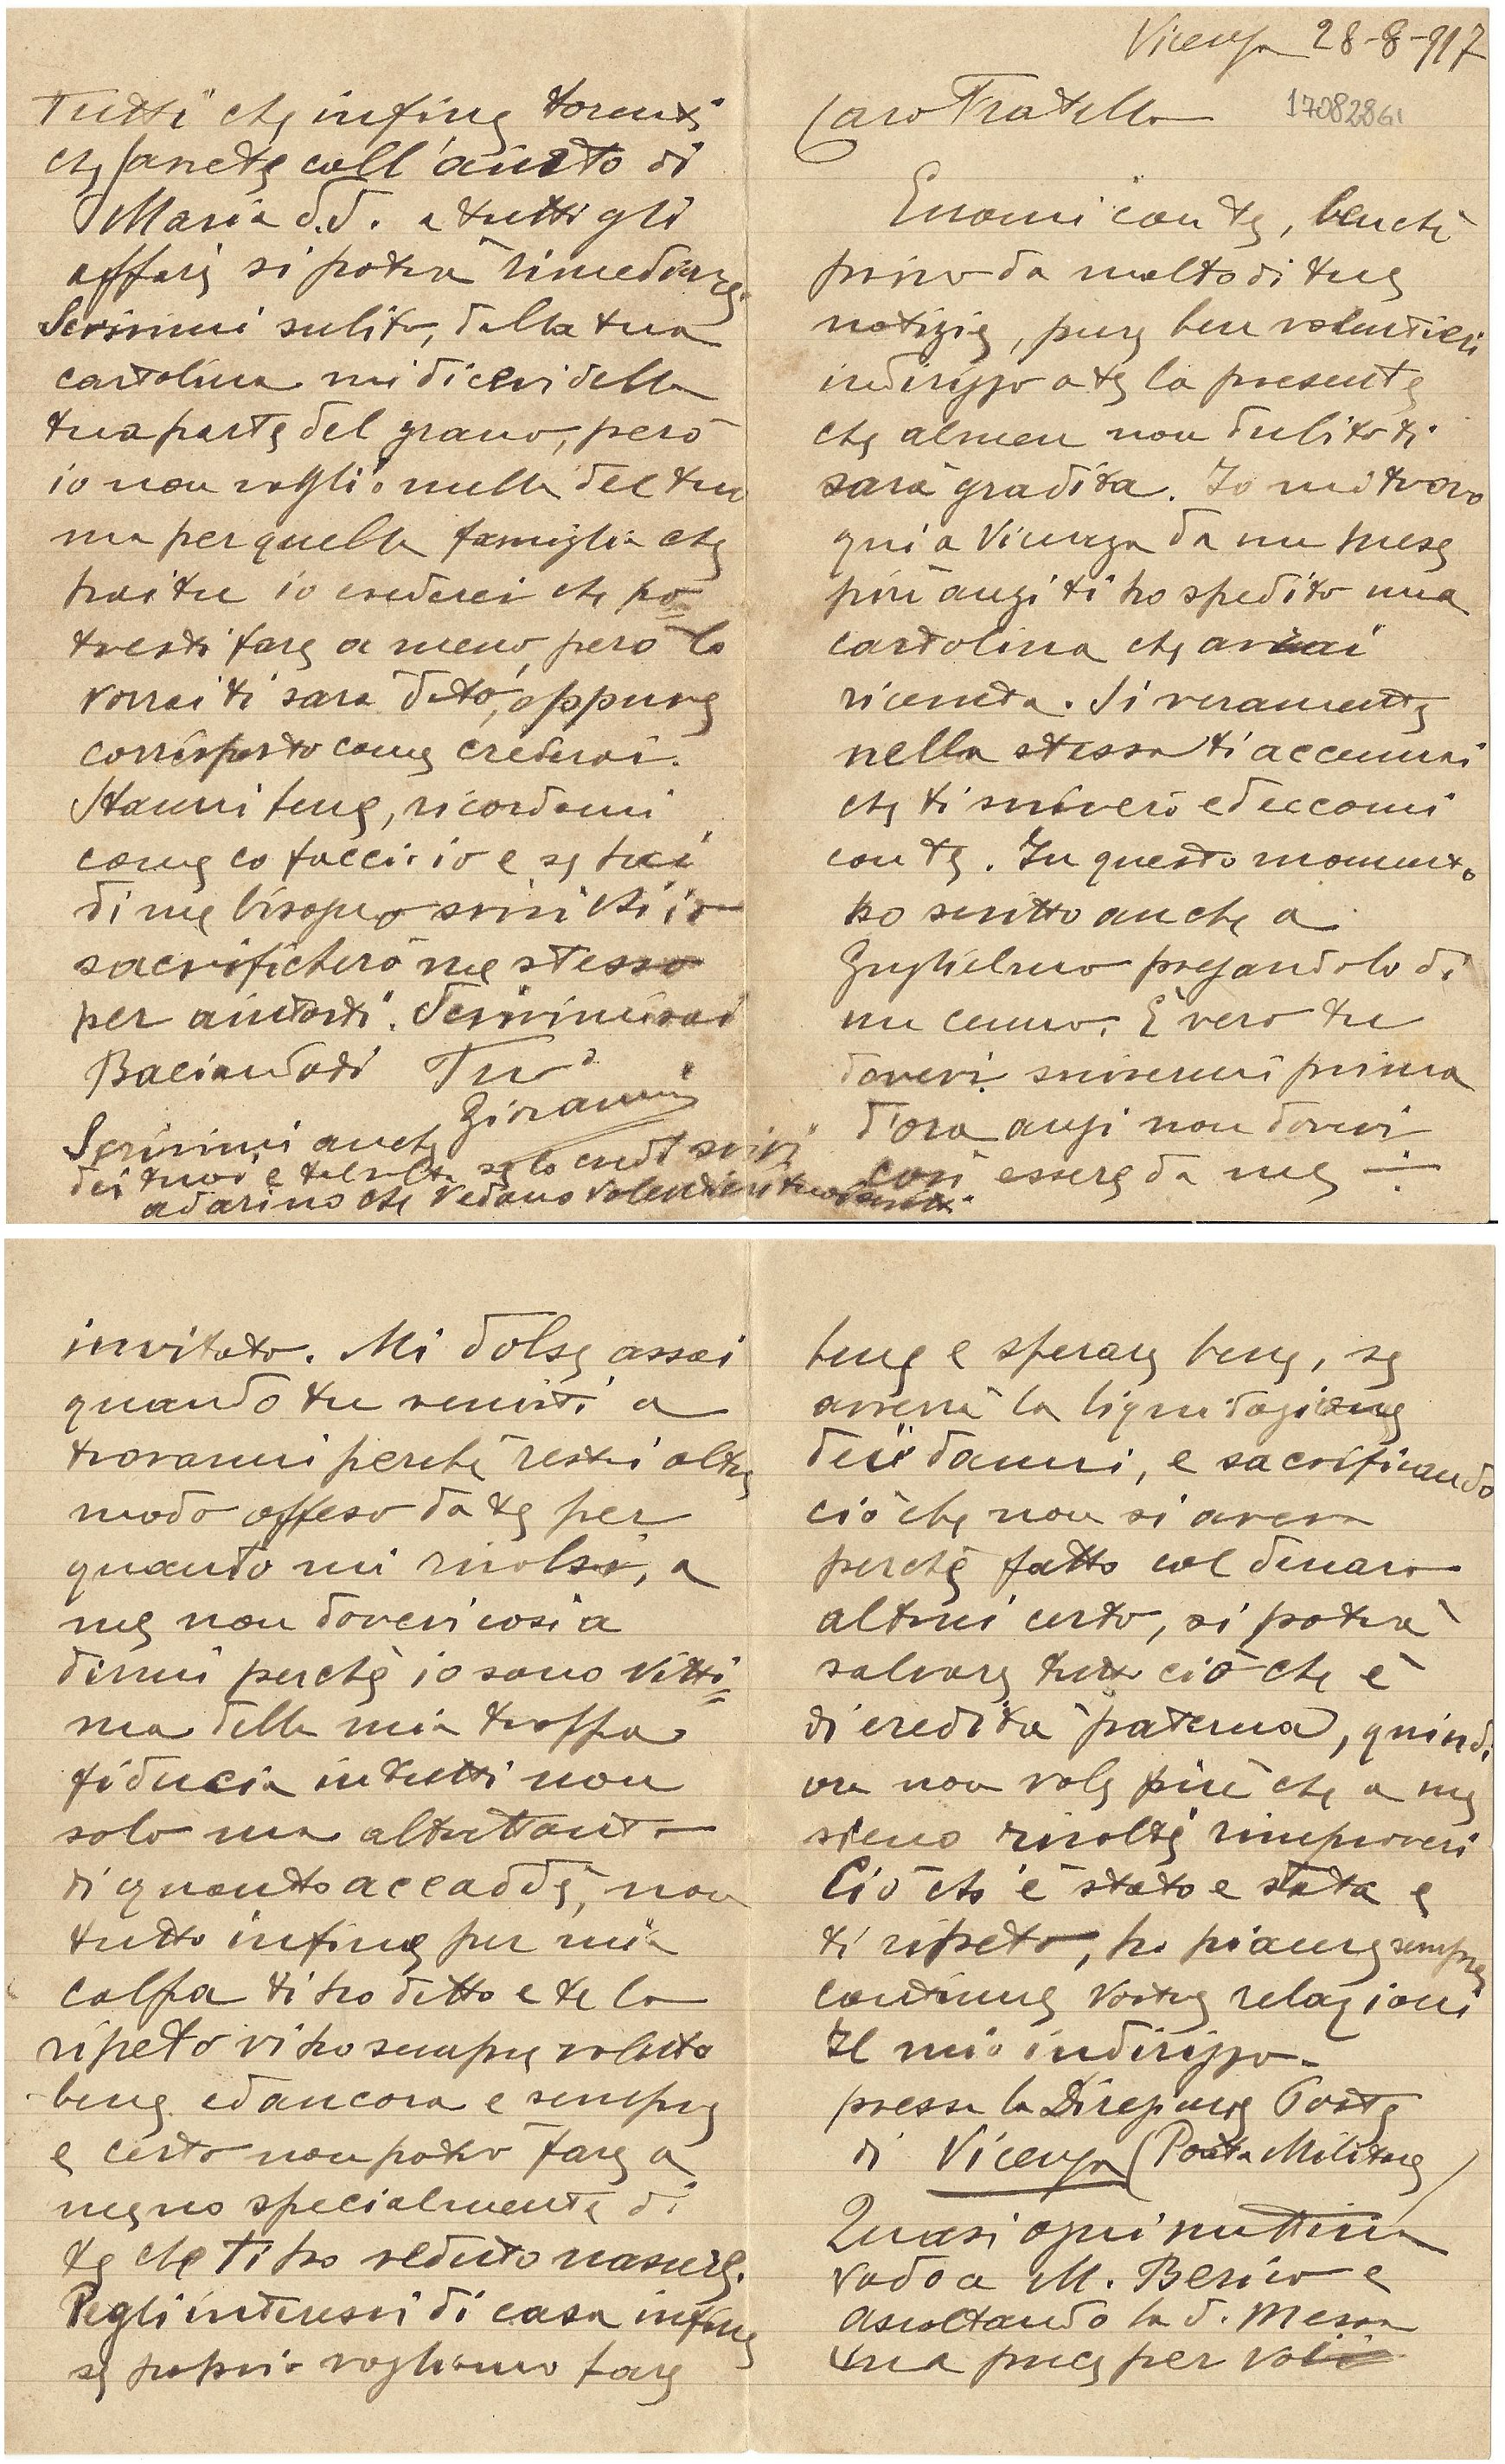 Vicenza 28-8-917
Caro Fratello
17082861
Eccomi con te, benchè
privo da molto di tue
notizie, pure ben volentieri
indirizzo a te la presente
che almen non dubito ti
sarà gradita. Io mi trovo
qui a Vicenza da un mese
più anzi ti ho spedito una
cartolina che avrai
ricevuta. Si veramente
nella stessa ti accennai
che ti scriverò ed eccomi
con te. In questo momento
ho scritto anche a
Guglielmo pregandolo di
un cenno. È vero tu
dovevi scrivermi prima
d'ora anzi non dovevi
così essere da me
invitato. Mi dolse assai
quando tu venisti a
trovarmi perchè restai oltre
modo offeso da te per
quanto mi rivolsi, a
me non dovevi così a
dirmi perchè io sono vitti=
ma della mia troppa
fiducia in tutti non
solo ma altrettanto
di quanto accadde, non
tutto infine per mia
colpa ti ho detto e te lo
ripeto vi ho sempre voluto
bene ed ancora e sempre
e certo non potrò fare a
meno specialmente di
te che ti ho veduto nascere.
Pegli interessi di casa infine
se proprio vogliamo fare
bene e sperare bene, se
avverrà la liquidazione
dei danni, e sacrificando
ciò che non si aveva
perchè fatto col denaro
altrui certo, si potrà
salvare tutto ciò che è
di eredità paterna, quindi
ora non vale più che a me
sieno rivolti rimproveri
Ciò ch'è stato è stato e
ti ripeto, ho piacere sempre
continue vostre relazioni
Il mio indirizzo.
presso la Direzione Poste
di Vicenza (Posta Militare)
Quasi ogni mattina
vado a M. Berico e
ascoltando la S. Messa
una prece per voi
tutti che infine torniate
che sarete coll'aiuto di
Maria S.S. a tutti gli
affari si potrà rimediare.
Scrivimi subito, dalla tua
cartolina mi dicevi della
tua parte del grano, però
io non voglio nulla del tuo
ma per quella famiglia che
hai tu io crederei che po=
tresti fare a meno, però lo
vorrai ti sarà dato, oppure
corrisposto come crederai.
Stammi bene, ricordami
come lo faccio io e se hai
di me bisogno scrivi ch'io
sacrificherò me stesso
per aiutarti. Scrivimi
Baciandoti Tuo
Giovanni
Scrivimi anche
dei tuoi e talvolta se lo credi scrivi
ad Arino che vedono volentieri